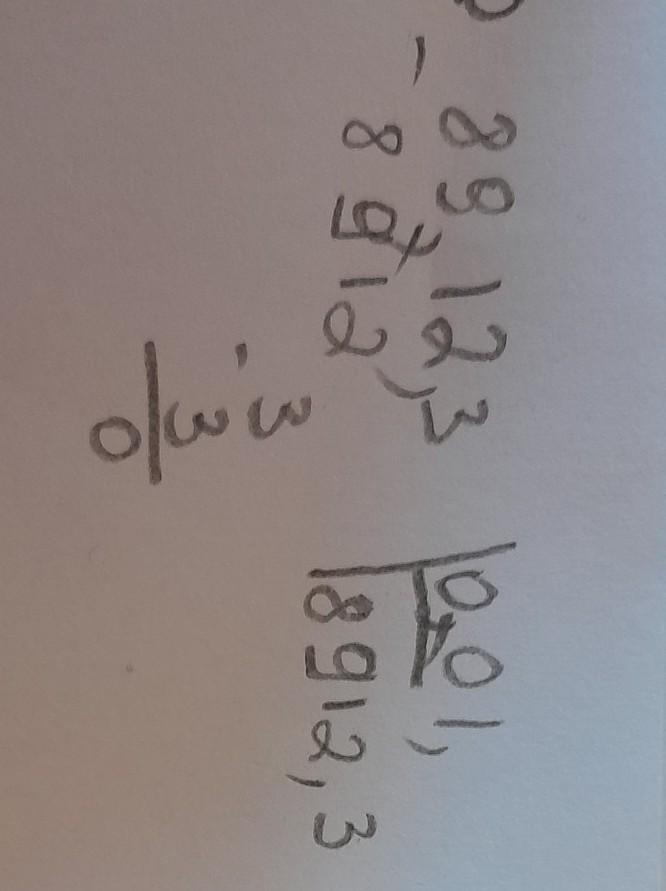 - 89,12,3 | 0,01,
8912 | 8912,3
3
- 3
0